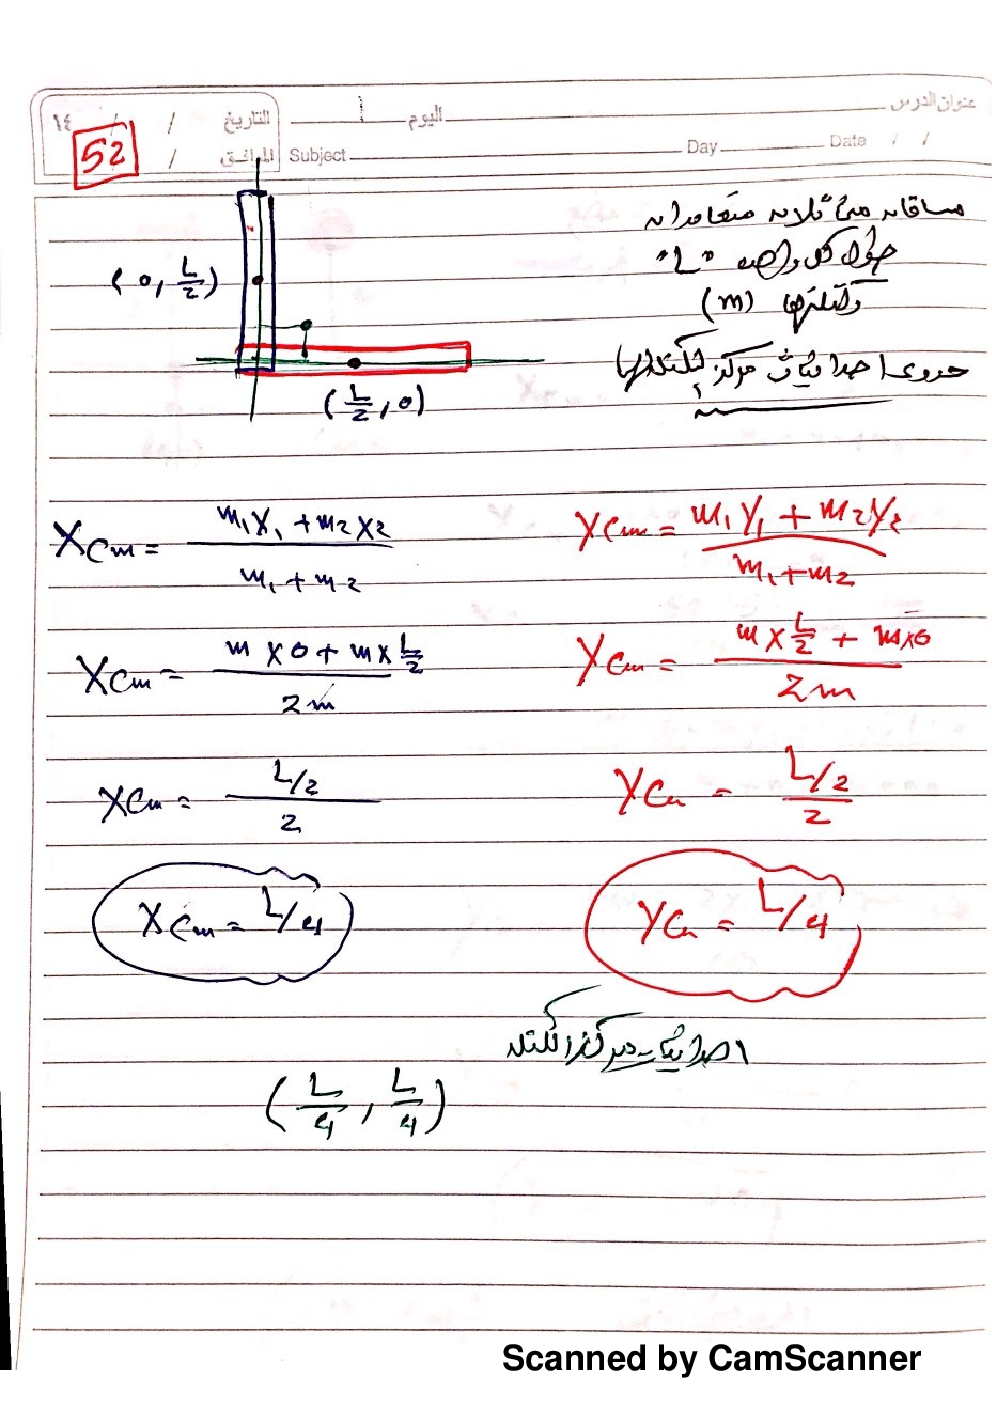 عنوان الدرس اليوم التاريخ / / ١٤
Subject Day Date / / الموافق /
52
ساقان متماثلان متعامدان
طول كل واحد "L"
وكتلتها (m)
حددي احداثيات مركز الكتلة لها
(0, L/2)
(L/2, 0)
Xcm = m₁X₁ + m₂X₂ / m₁ + m₂
Ycm = m₁Y₁ + m₂Y₂ / m₁ + m₂
Xcm = m × 0 + m × L/2 / 2m
Ycm = m × L/2 + m × 0 / 2m
Xcm = L/2 / 2
Ycm = L/2 / 2
Xcm = L/4
Ycm = L/4
احداثيات مركز الكتلة
(L/4, L/4)
Scanned by CamScanner